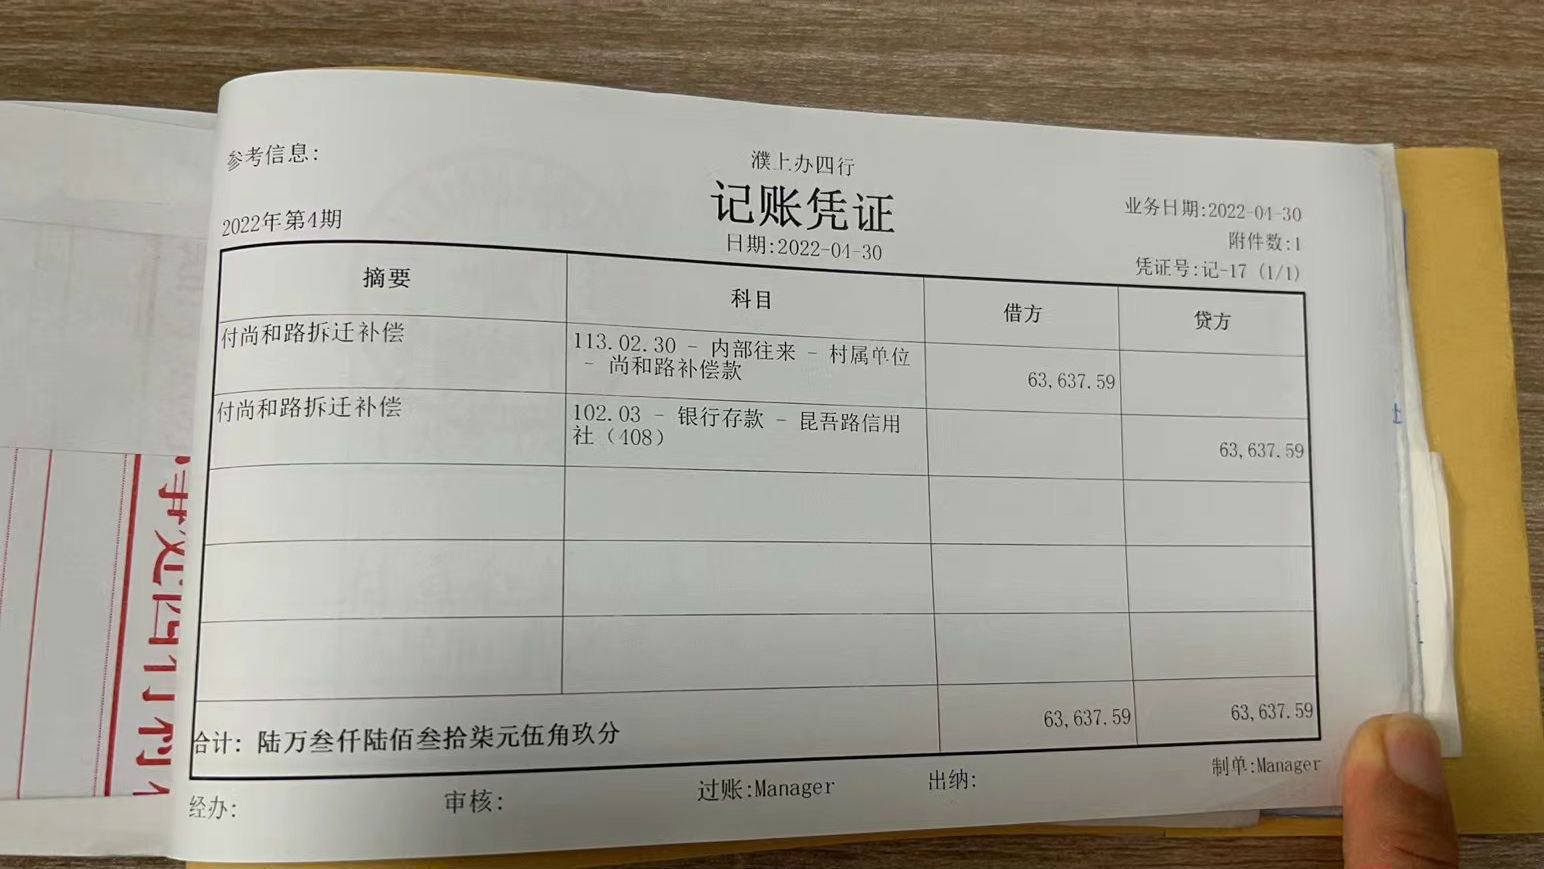 参考信息:
濮上办四行
记账凭证
2022年第4期
日期:2022-04-30
业务日期:2022-04-30
附件数:1
凭证号:记-17 (1/1)
摘要 科目 借方 贷方
付尚和路拆迁补偿 113.02.30 - 内部往来 - 村属单位 63,637.59
- 尚和路补偿款
付尚和路拆迁补偿 102.03 - 银行存款 - 昆吾路信用 63,637.59
社（408）
合计: 陆万叁仟陆佰叁拾柒元伍角玖分 63,637.59 63,637.59
经办: 审核: 过账:Manager 出纳: 制单:Manager